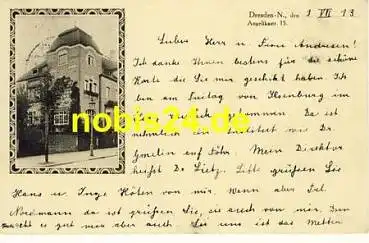 Dresden-N., den 1 VII 13
Angelikastr. 15.
Lieber Herr u. Frau Andresen!
Ich danke Ihnen bestens für die schöne
Karte die Sie mir geschickt haben. Ich
bin am Freitag von Ilsenburg im
gekommen. Da ist
nobis24.de
nämlich ein Dr.
Gmelin auf Föhr. Mein Direktor
heißt Dr Lietz. Bitte grüßen Sie
Hans u. Inge von mir. Wenn aber Frl.
Nordmann da ist grüßen Sie, sie auch von mir. Den
es geht mir aber auch. Bei uns ist das Wetter